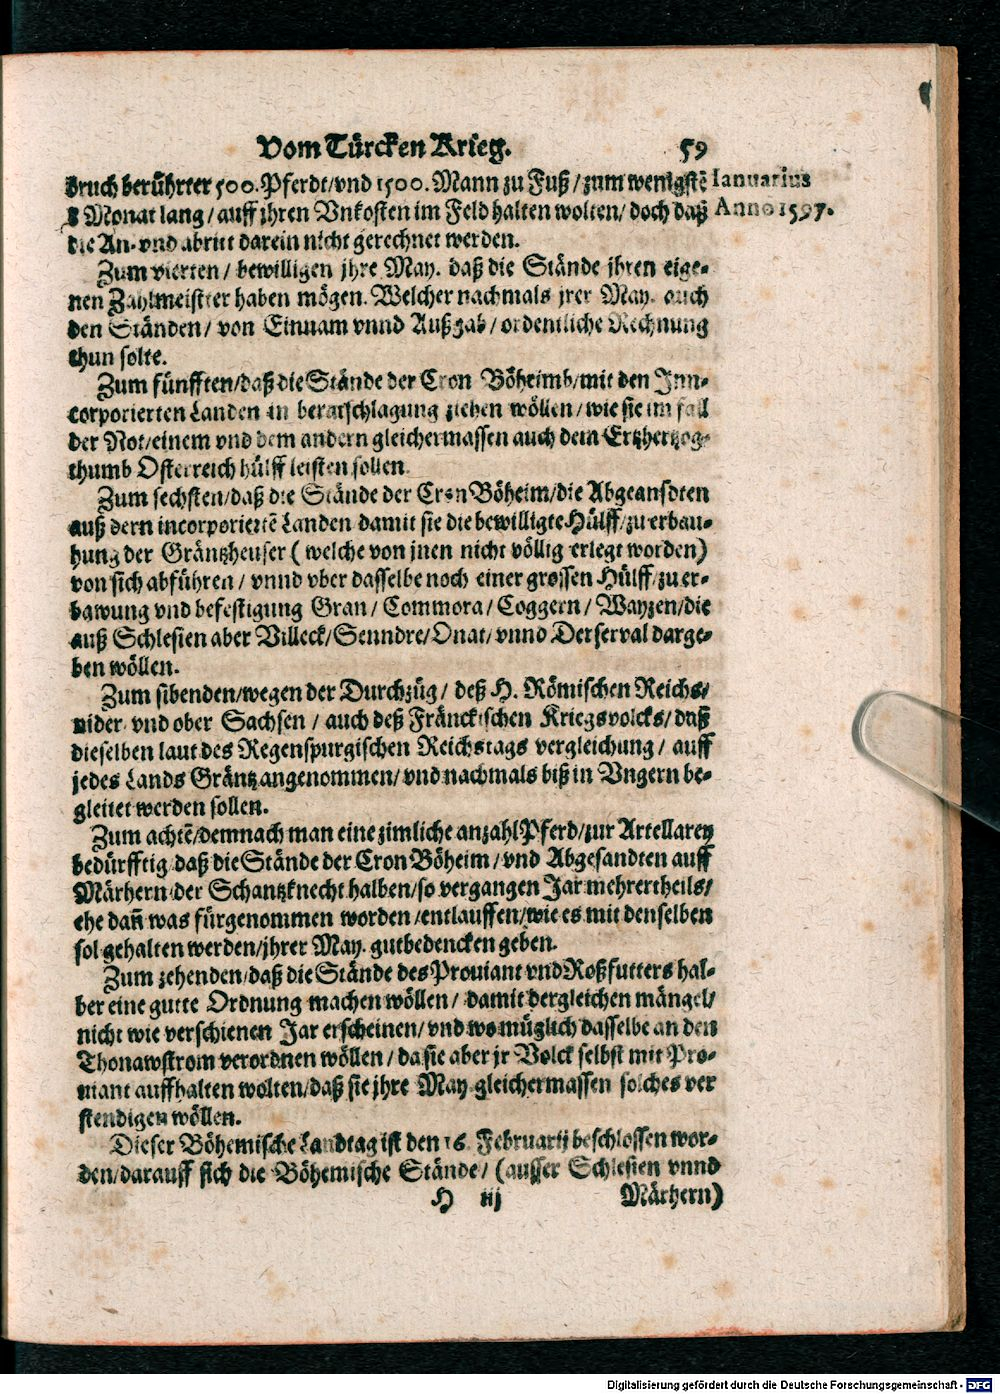 Vom Türcken Krieg. 59
druch berührter 500. Pferdt/vnd 1500. Mann zu Fuß/zum wenigstẽ Ianuarius
8 Monat lang/auff jhren Vnkosten im Feld halten wolten/doch daß Anno 1597.
die An- vnd abritt darein nicht gerechnet werden.
Zum vierten/bewilligen jhre May. daß die Stände jhren eige-
nen Zahlmeister haben mögen. Welcher nachmals jrer May. auch
den Ständen/von Einnam vnnd Außgab/ordentliche Rechnung
thun solte.
Zum fünfften/daß die Stände der Cron Böheimb/mit den Inn-
corporierten Landen in beratschlagung ziehen wöllen/wie sie im fall
der Not/einem vnd dem andern gleichermassen auch dem Ertzhertzog-
thumb Osterreich hülff leisten sollen.
Zum sechsten/daß die Stände der Cron Böheim/die Abgeansdten
auß dern incorporiertẽ Landen damit sie die bewilligte Hülff/zu erbau-
hung der Gräntzheuser (welche von jnen nicht völlig erlegt worden)
von sich abführen/vnnd vber dasselbe noch einer grossen Hülff/zu er-
bawung vnd befestigung Gran/Commora/Coggern/Wayzen/die
auß Schlesien aber Villeck/Senndre/Onat/vnnd Derserval darge-
ben wöllen.
Zum sibenden/wegen der Durchzüg/deß H. Römischen Reichs/
nider vnd ober Sachsen/auch deß Fränckischen Kriegsvolcks/daß
dieselben laut des Regenspurgischen Reichstags vergleichung/auff
jedes Lands Gräntz angenommen/vnd nachmals biß in Vngern be-
gleitet werden sollen.
Zum achtẽ/demnach man eine zimliche anzahl Pferd/zur Artellarey
bedürfftig/daß die Stände der Cron Böheim/vnd Abgesandten auff
Märhern/der Schantzknecht halben/so vergangen Jar mehrertheils/
ehe dañ was fürgenommen worden/entlauffen/wie es mit denselben
sol gehalten werden/jhrer May. gutbedencken geben.
Zum zehenden/daß die Stände des Prouiant vnd Roßfutters hal-
ber eine gutte Ordnung machen wöllen/damit dergleichen mängel/
nicht wie verschienen Jar erscheinen/vnd wo müglich dasselbe an den
Thonawstrom verordnen wöllen/da sie aber jr Volck selbst mit Pro-
uiant auffhalten wolten/daß sie jhre May gleichermassen solches ver
stendigen wöllen.
Dieser Böhemische Landtag ist den 16. Februarij beschlossen wor-
den/darauff sich die Böhemische Stände/(ausser Schlesien vnnd
H iij Märhern)
Digitalisierung gefördert durch die Deutsche Forschungsgemeinschaft - DFG